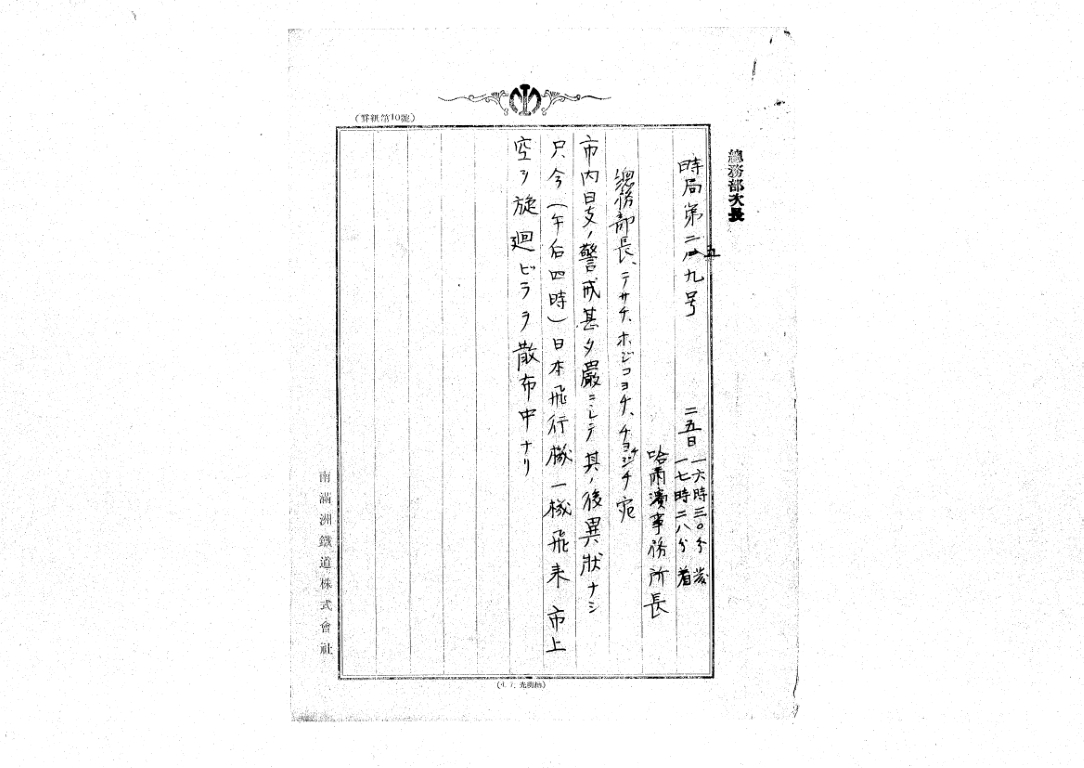 總務部次長
時局第二五九号
二五日 一六時三〇分 発
一七時二八分 着
哈爾濱事務所長
總務部長、テサチ、ホジコヨチ、チヨジチ宛
市内日支ノ警戒甚タ嚴ニシテ其ノ後異狀ナシ
只今(午后四時)日本飛行機一機飛来 市上
空ヲ旋廻ビラヲ散布中ナリ
南滿洲鐵道株式會社